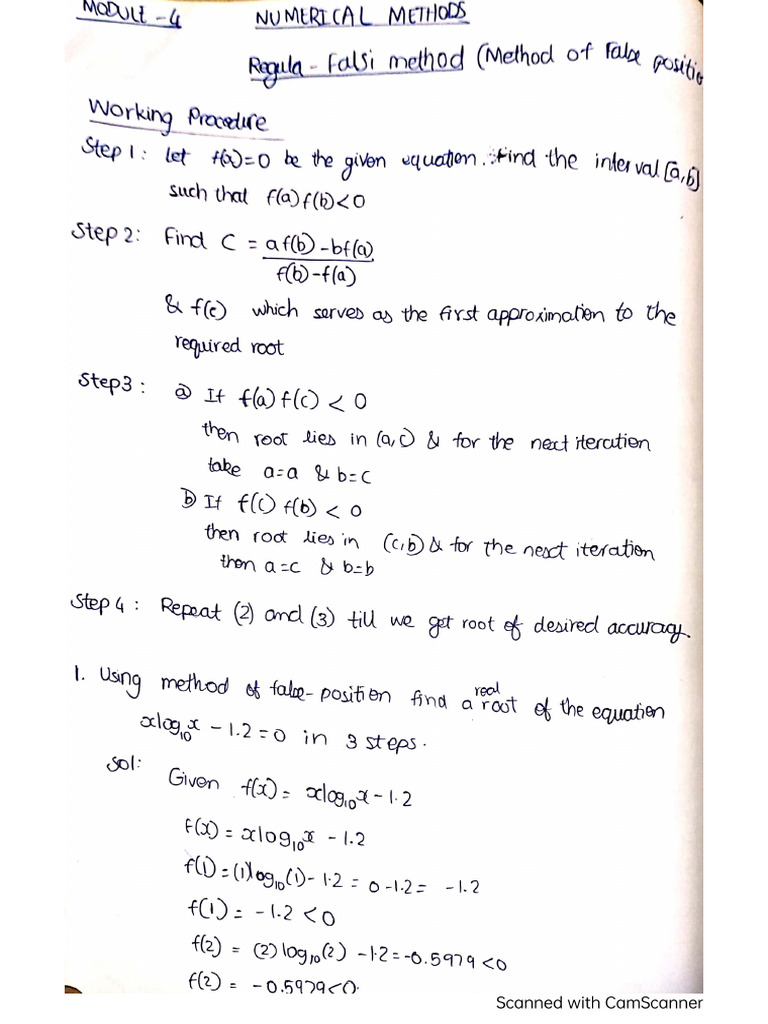 MODULE-4 NUMERICAL METHODS
Regula-Falsi method (Method of False positio
Working Procedure
Step 1: let f(x)=0 be the given equation. Find the interval [a,b]
such that f(a) f(b)<0
Step 2: Find C = af(b)-bf(a)
f(b)-f(a)
& f(c) which serves as the first approximation to the
required root
Step3: a) If f(a) f(c) < 0
then root lies in (a,c) & for the next iteration
take a=a & b=c
b) If f(c) f(b) < 0
then root lies in (c,b) & for the next iteration
then a=c & b=b
Step 4: Repeat (2) and (3) till we get root of desired accuracy.
1. Using method of false-position find a real root of the equation
xlog₁₀x - 1.2=0 in 3 steps.
Sol: Given f(x)= xlog₁₀x-1.2
f(x)= xlog₁₀x - 1.2
f(1)=(1)log₁₀(1)-1.2 = 0-1.2= -1.2
f(1)= -1.2 <0
f(2) = (2) log₁₀(2) -1.2=-0.5979 <0
f(2) = -0.5979<0.
Scanned with CamScanner